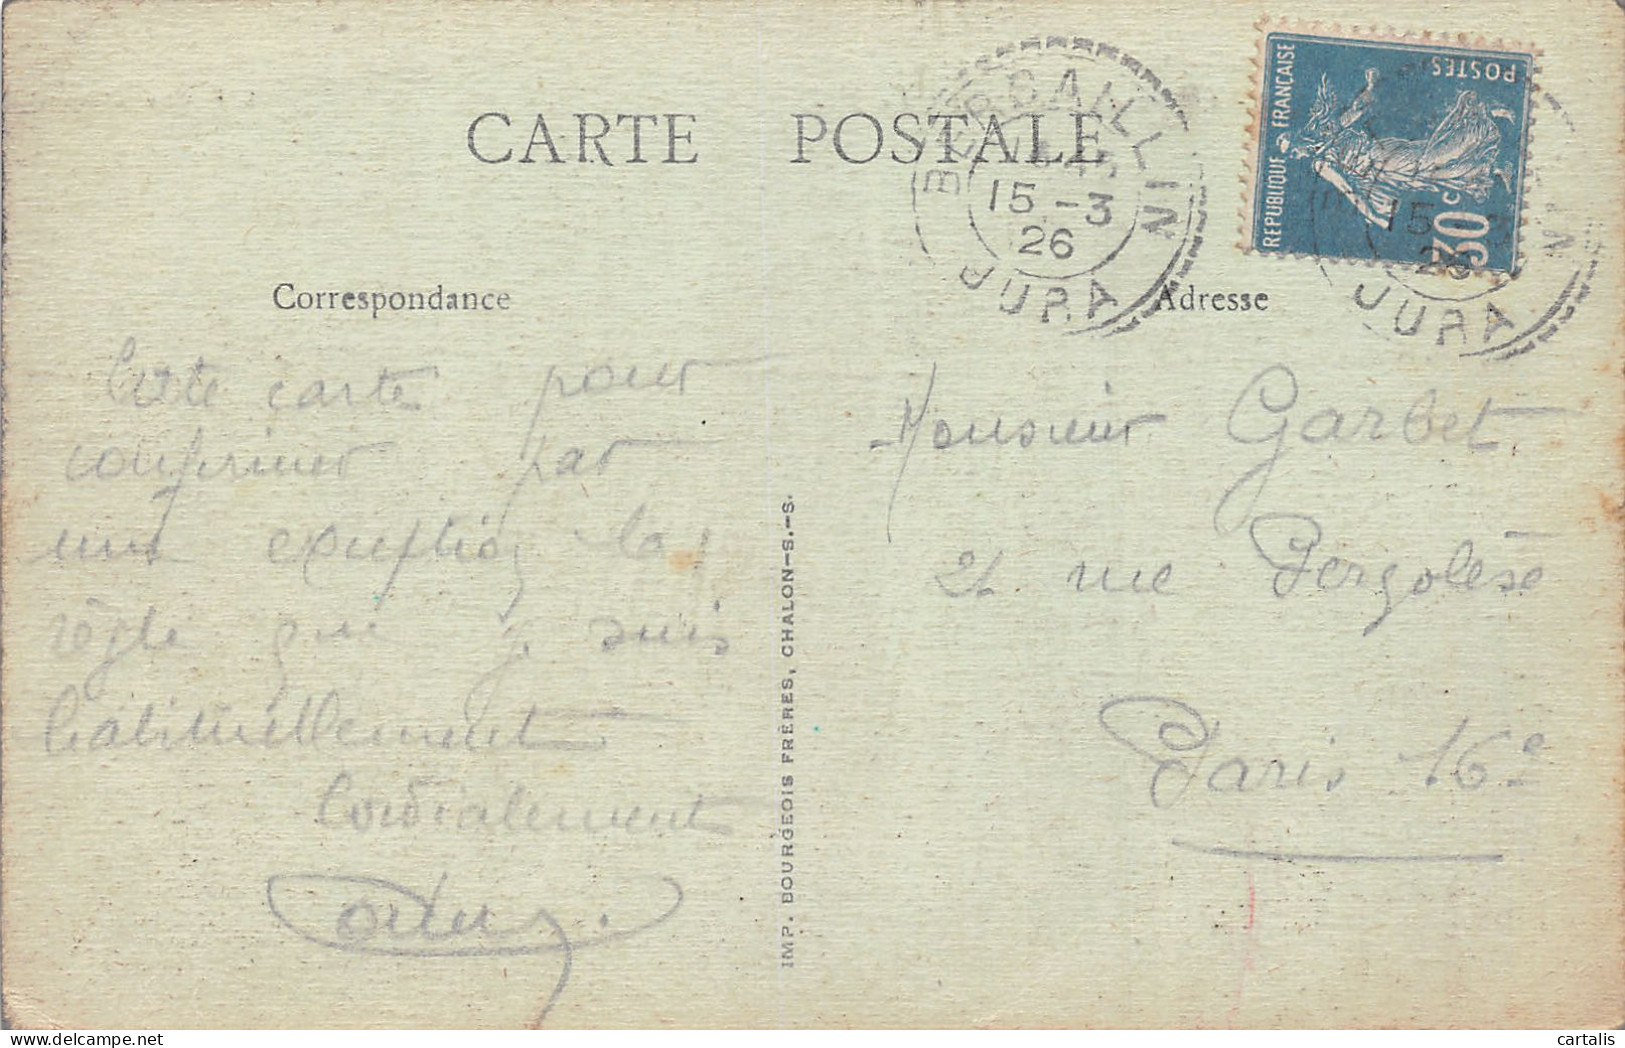 CARTE POSTALE
BERSAILLIN
15 -3
26
JURA
REPUBLIQUE FRANÇAISE
POSTES
30c
15 -3
26
JURA
Correspondance
Adresse
Cette carte pour
confirmer par
une exception la
règle que je suis
habituellement
Cordialement
IMP. BOURGEOIS FRÈRES, CHALON-S.-S.
Monsieur Garbet
21 rue Pergolèse
Paris 16e
cartalis